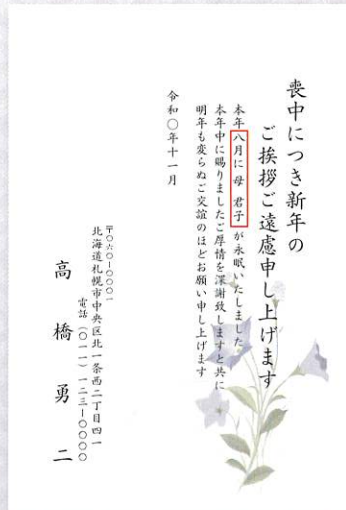 喪中につき新年の
ご挨拶ご遠慮申し上げます
本年八月に 母 君子 が永眠いたしました
本年中に賜りましたご厚情を深謝致しますと共に
明年も変らぬご交誼のほどお願い申し上げます
令和〇年十一月
〒〇六〇-〇〇〇一
北海道札幌市中央区北一条西二丁目四一
電話（〇一一）一二三-〇〇〇〇
高橋勇二